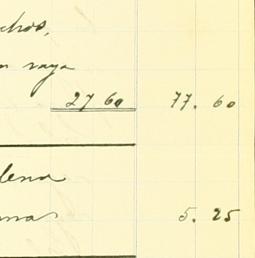 chos,
n raya
27 60 77. 60
lena
mas
5. 25